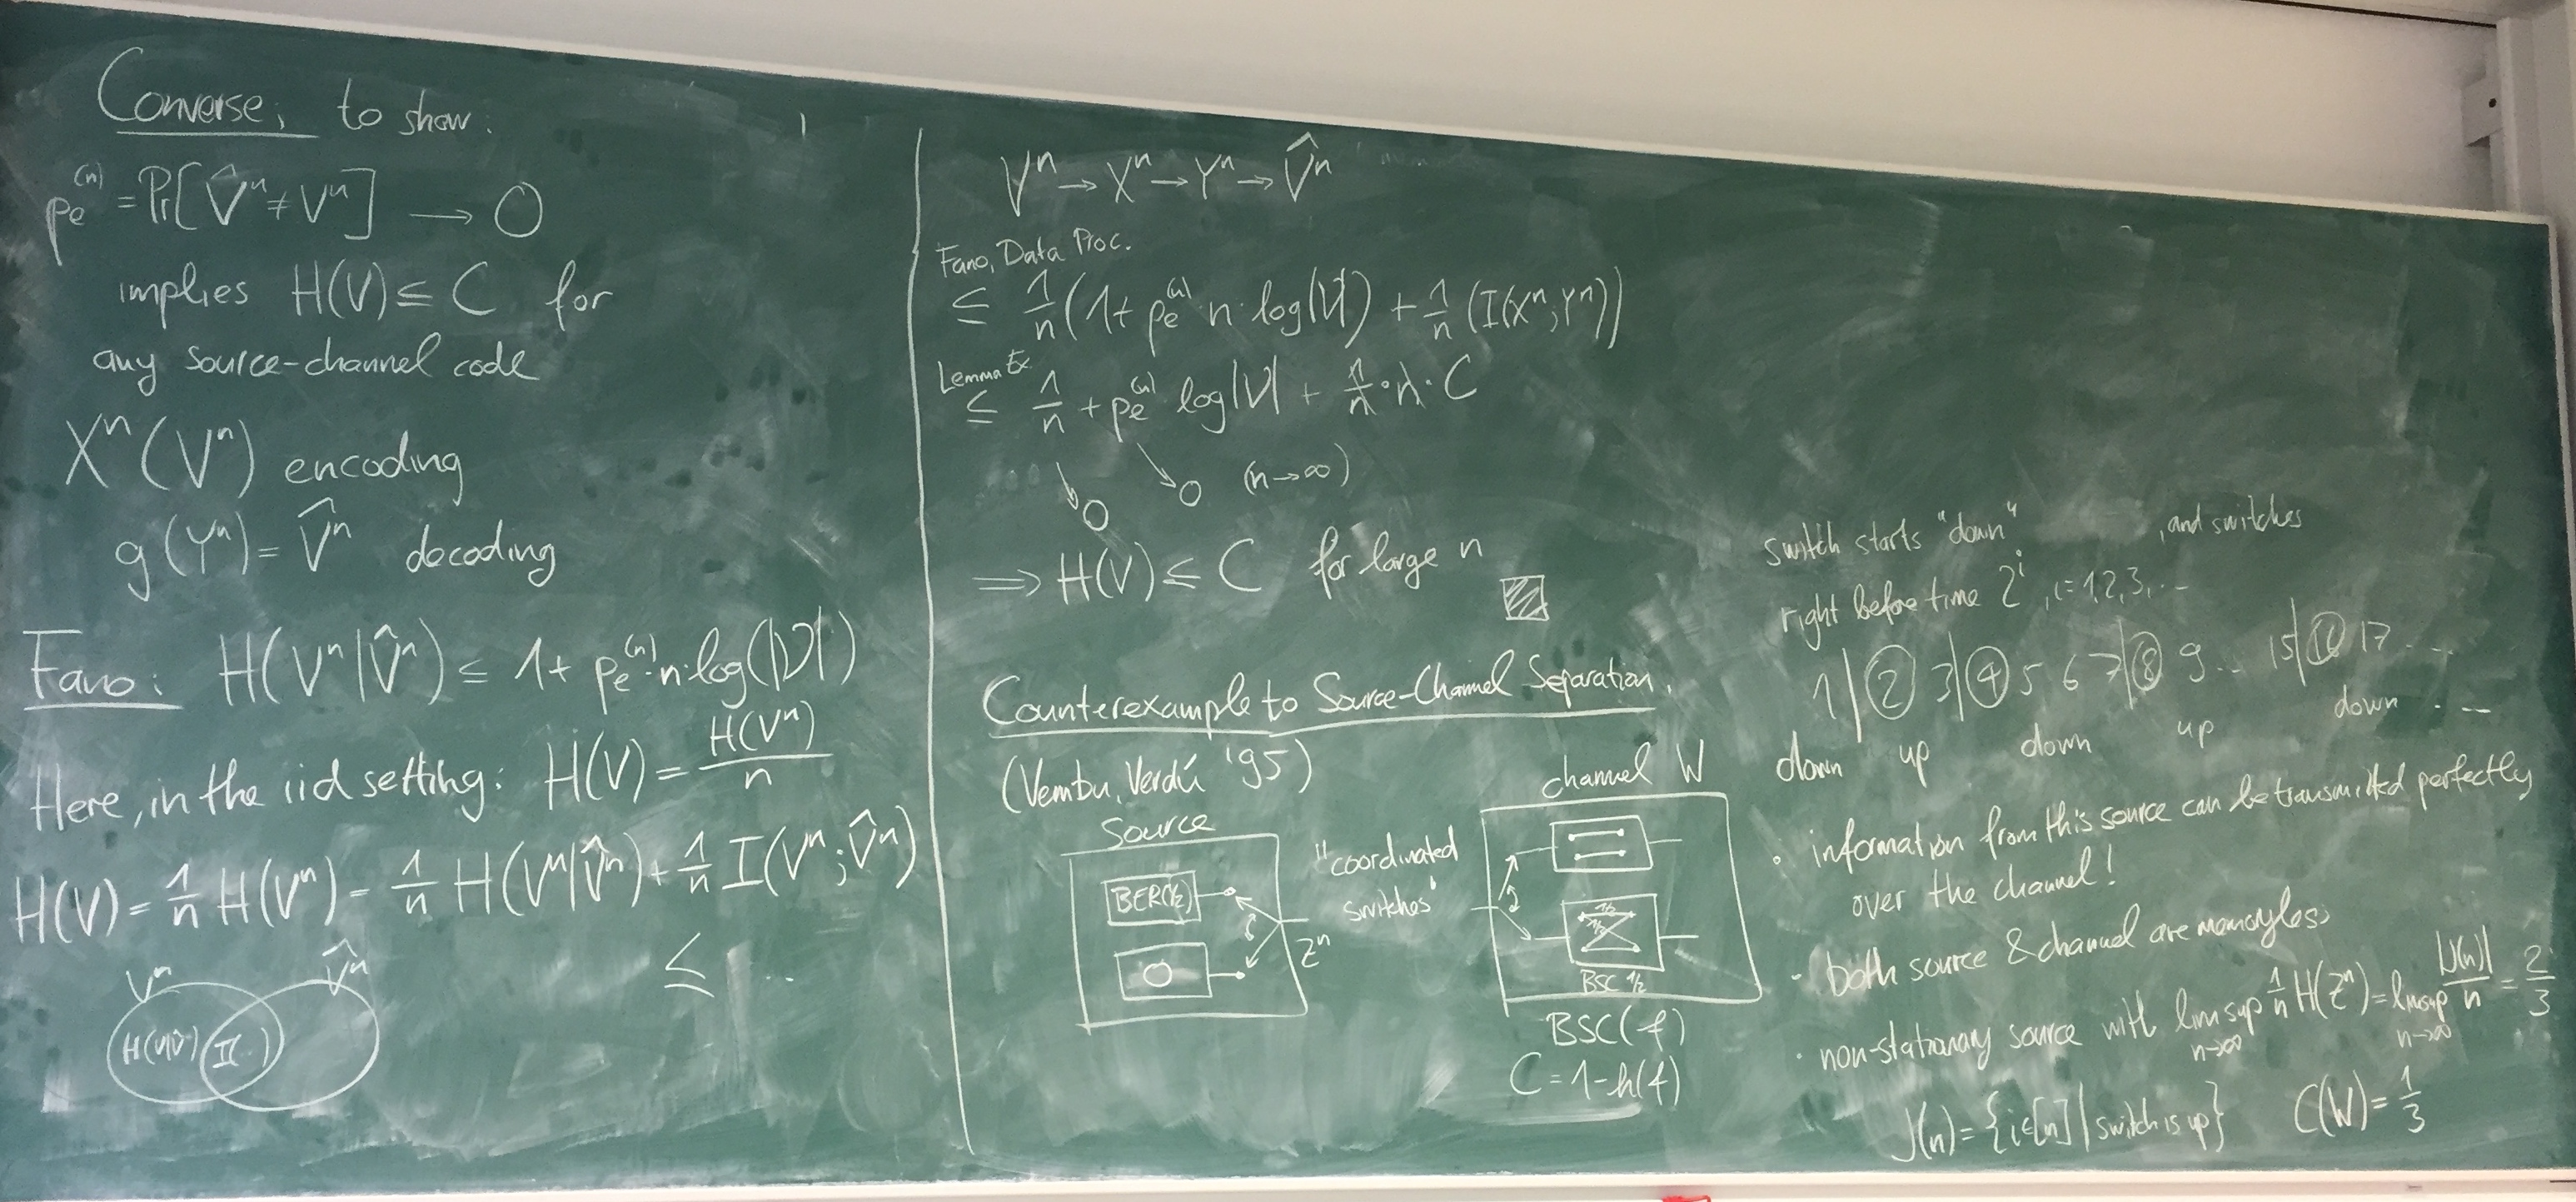 Converse: to show:
pe^(n) = Pr[V̂^n ≠ V^n] → 0
implies H(V) ≤ C for
any source-channel code
X^n(V^n) encoding
g(Y^n) = V̂^n decoding
Fano: H(V^n|V̂^n) ≤ 1 + pe^(n)·n·log(|V|)
Here, in the iid setting: H(V) = H(V^n)/n
H(V) = 1/n H(V^n) = 1/n H(V^n|V̂^n) + 1/n I(V^n; V̂^n)
≤ ...
V^n V̂^n
H(V|V̂) I(·)
V^n → X^n → Y^n → V̂^n
Fano, Data Proc.
≤ 1/n (1 + pe^(n) n·log|V|) + 1/n (I(X^n; Y^n))
Lemma Ex
≤ 1/n + pe^(n) log|V| + 1/n · n · C
0 0 (n→∞)
⟹ H(V) ≤ C for large n
Counterexample to Source-Channel Separation.
(Vembu, Verdú '95)
Source
BER(1/2)
0
Z^n
"coordinated
switches"
channel W
1/2
1/2
BSC 1/2
BSC(f)
C = 1-h(f)
switch starts "down" , and switches
right before time 2^i, i=1,2,3,...
1 | 2 3 | 4 5 6 7 | 8 9 .. 15 | 16 17 ...
down up down up down ...
· information from this source can be transmitted perfectly
over the channel!
· both source & channel are memoryless
· non-stationary source with limsup n→∞ 1/n H(Z^n) = limsup n→∞ |J(n)|/n = 2/3
J(n) = {i∈[n] | switch is up} C(W) = 1/3